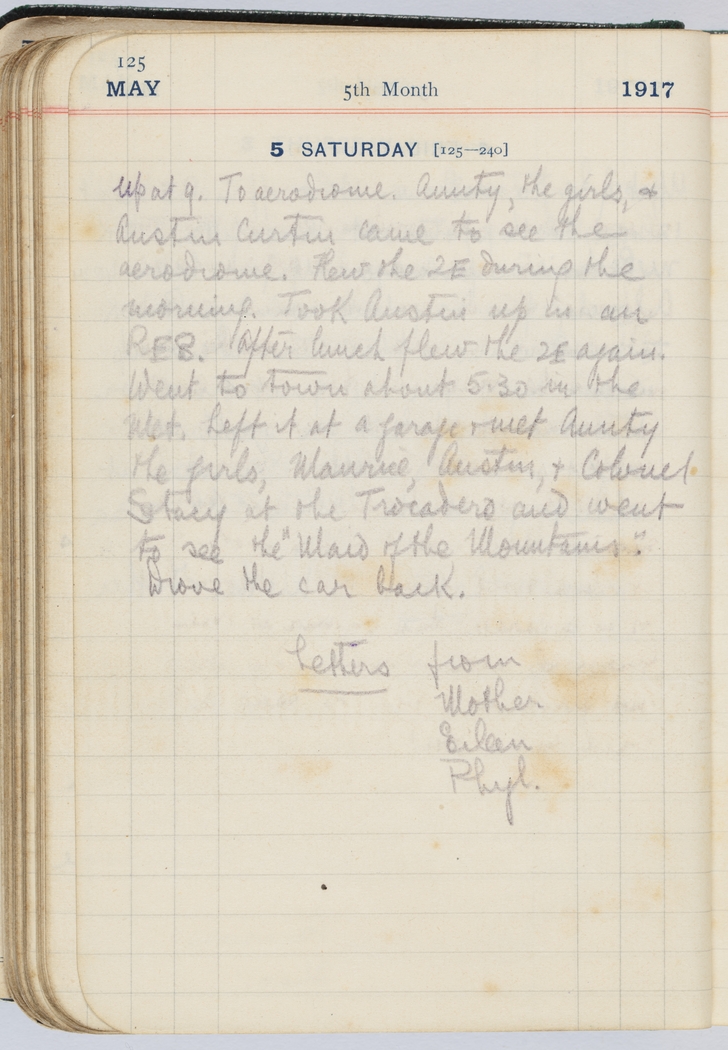 125
MAY 5th Month 1917
5 SATURDAY [125—240]
Up at 9. To aerodrome. Aunty, the girls, &
Austin Curtin came to see the
aerodrome. Flew the 2E during the
morning. Took Austin up in an
RE8. After lunch flew the 2E again.
Went to town about 5.30 in the
Left it at a garage & met Aunty
the girls, Maurice, Austin, & Colonel
Stacy at the Trocadero and went
to see the "Maid of the Mountains".
Drove the car back.
Letters from
Mother
Eileen
Phyl.